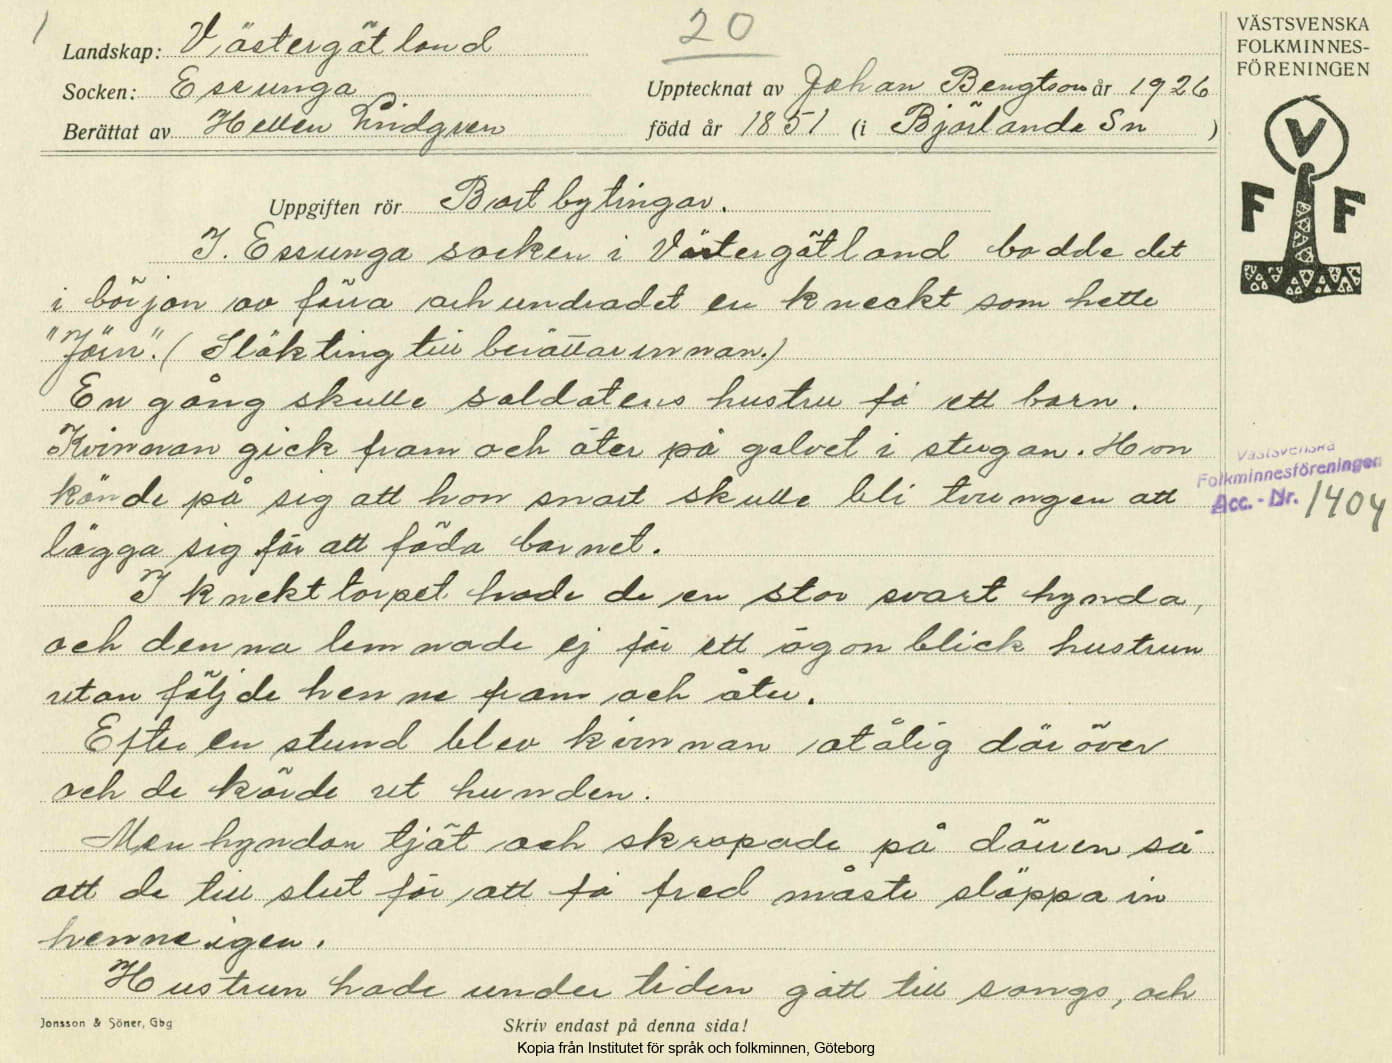 1
20
Landskap: Västergötland
Socken: Essunga
Upptecknat av Johan Bengtson år 1926
Berättat av Hellen Lindgren
född år 1851 (i Björlanda Sn )
Uppgiften rör Bortbytingar.
I. Essunga socken i Västergötland bodde det
i början av förra århundradet en kneckt som hette
"Jörn". (Släkting till berätterinnan.)
En gång skulle soldatens hustru få ett barn.
Kvinnan gick fram och åter på golvet i stugan. Hon
kände på sig att hon snart skulle bli tvungen att
lägga sig för att föda barnet.
I knekttorpet hade de en stor svart hynda,
och denna lemnade ej för ett ögonblick hustrun
utan följde henne fram och åter.
Efter en stund blev kvinnan otålig däröver
och de körde ut hunden.
Men hyndan tjöt och skrapade på dörren så
att de till slut för att få fred måste släppa in
henne igen.
Hustrun hade under tiden gått till sängs, och
Jonsson & Söner, Gbg
Skriv endast på denna sida!
Kopia från Institutet för språk och folkminnen, Göteborg
VÄSTSVENSKA
FOLKMINNES-
FÖRENINGEN
V
F F
Västsvenska
Folkminnesföreningen
Acc. - Nr. 1404